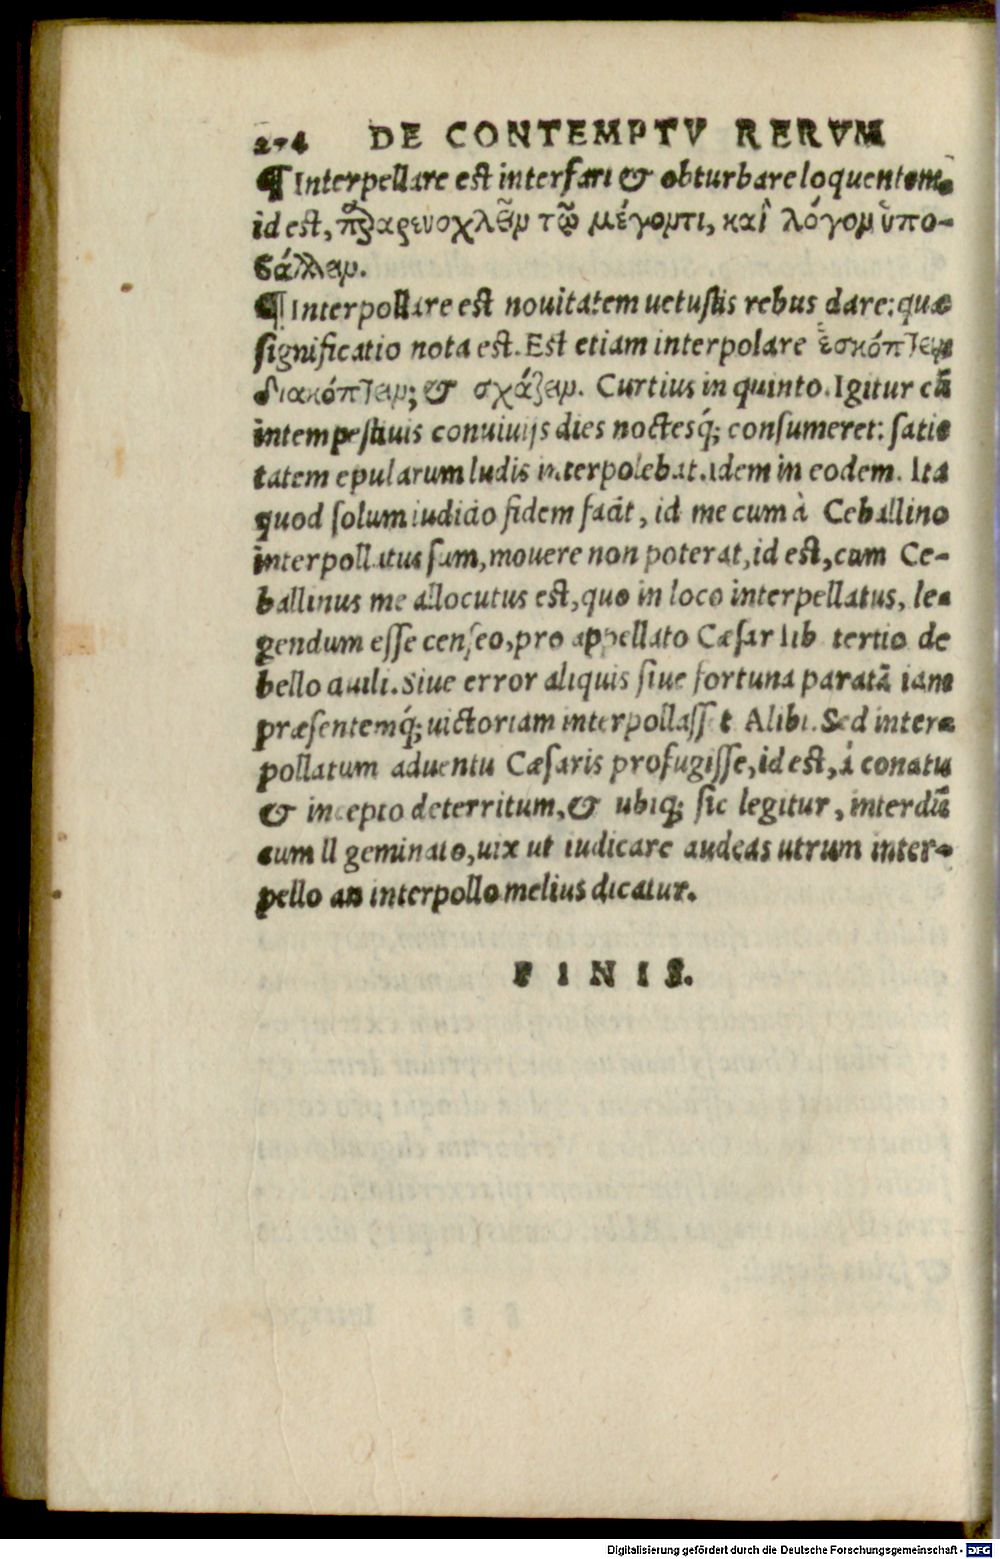 274 DE CONTEMPTV RERVM
¶ Interpellare est interfari & obturbare loquentem.
id est, παρενοχλεῖν τῷ λέγοντι, καὶ λόγον ὑπο-
βάλλειν.
¶ Interpollare est nouitatem uetustis rebus dare: quæ
significatio nota est. Est etiam interpolare ἐσκόπτειν
διακόπτειν; & σχάζειν. Curtius in quinto. Igitur cũ
intempestiuis conuiuijs dies noctesq́; consumeret: satie
tatem epularum ludis interpolebat. idem in eodem. Ita
quod solum iudicio fidem facit, id me cum à Ceballino
interpollatus sum, mouere non poterat, id est, cum Ce-
ballinus me allocutus est, quo in loco interpellatus, le-
gendum esse censeo, pro appellato Cæsar lib tertio de
bello ciuili. Siue error aliquis siue fortuna paratã iam
præsentemq́; uictoriam interpollasset Alibi. Sed inter-
pollatum aduentu Cæsaris profugisse, id est, à conatu
& incepto deterritum, & ubiq; sic legitur, interdũ
cum ll geminato, uix ut iudicare audeas utrum inter-
pello an interpollo melius dicatur.
FINIS.
Digitalisierung gefördert durch die Deutsche Forschungsgemeinschaft - DFG